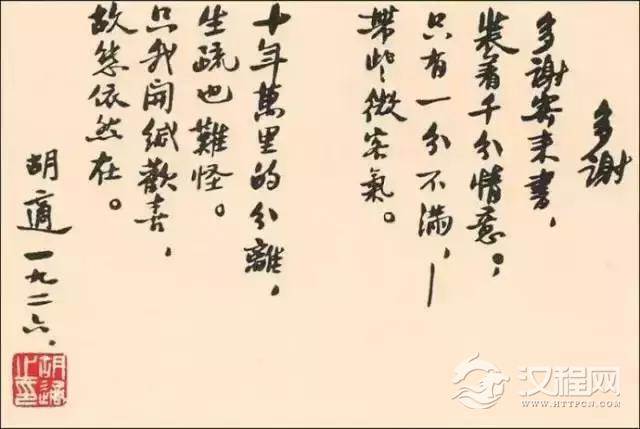 多謝
多謝寄来書，
裝着千分情意。，
只有一分不滿，—
帶些微客氣。
十年萬里的分離，
生疏也難怪。
只我開緘歡喜，
故態依然在。
胡適 一九二六．
胡適之印
汉程网
WWW.HTTPCN.COM